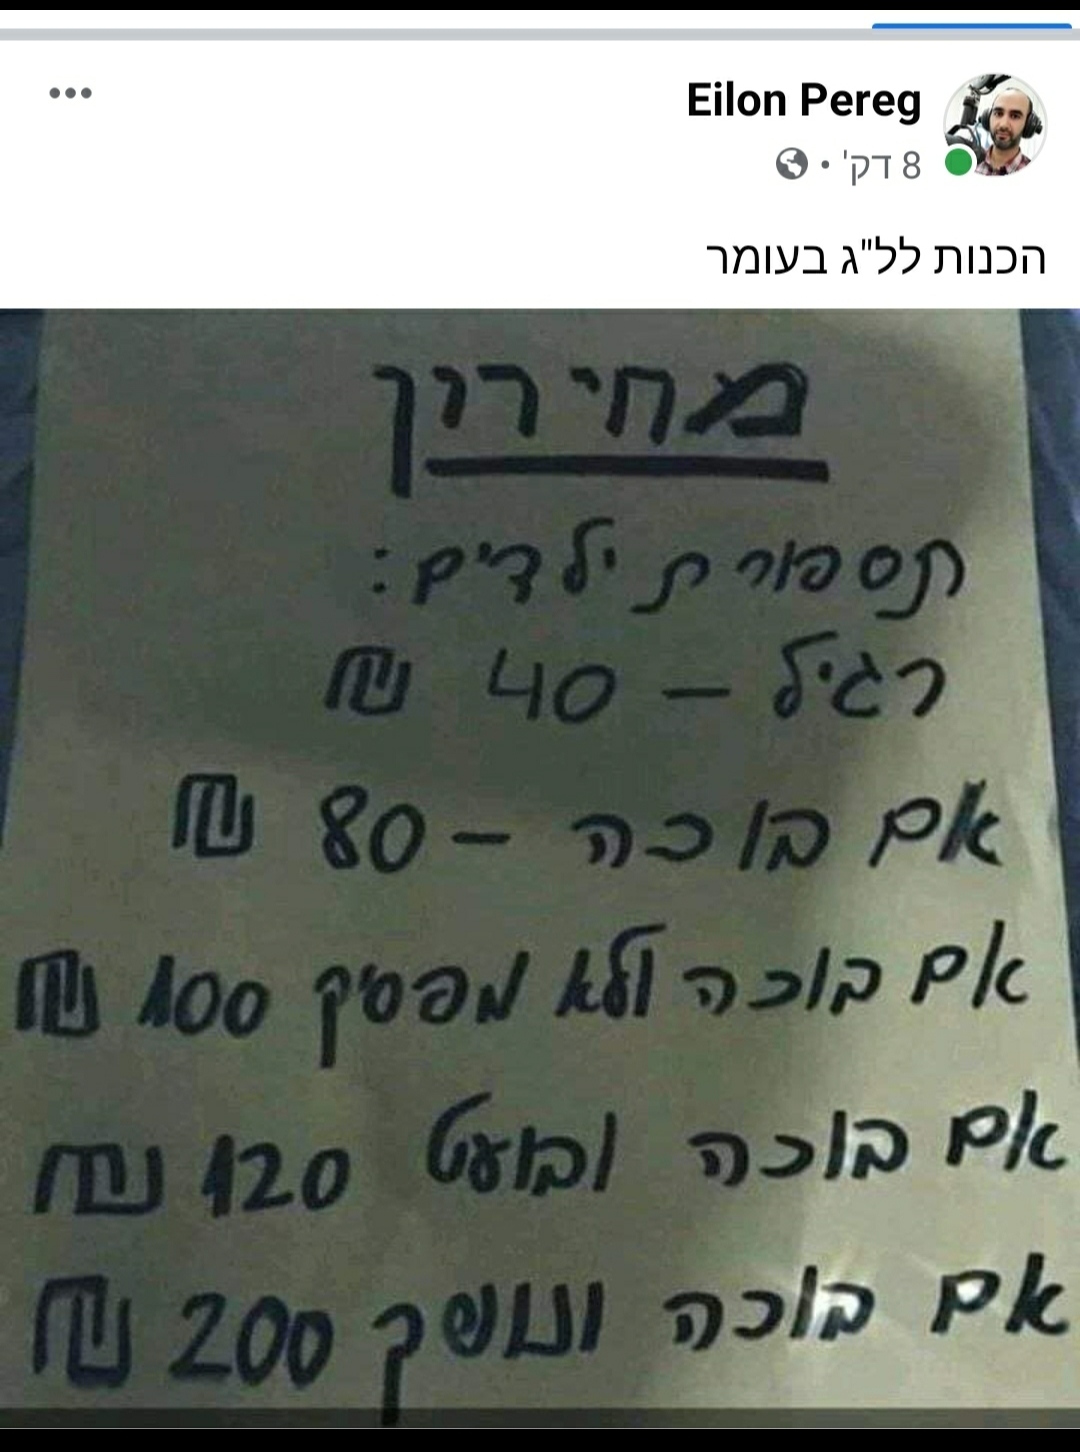 Eilon Pereg
8 דק' ·
הכנות לל"ג בעומר
מחירון
תספורת ילדים:
רגיל - 40 ₪
אם בוכה - 80 ₪
אם בוכה ולא מפסיק 100 ₪
אם בוכה ובועט 120 ₪
אם בוכה ונושך 200 ₪